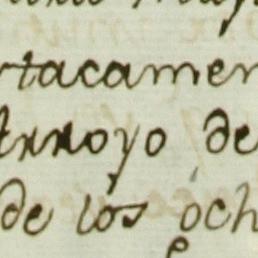 rtacamen
Arroyo de
de los och